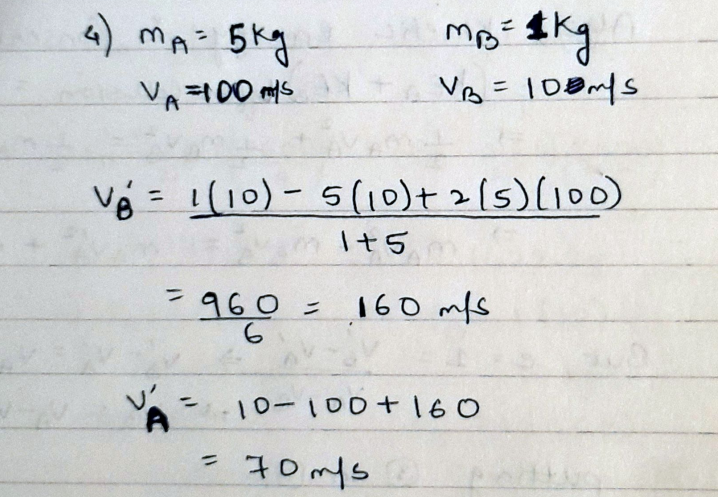 4) mA = 5kg mB = 1kg
VA = 100 m/s VB = 10 m/s
VB' = 1(10) - 5(10) + 2(5)(100)
1+5
= 960 = 160 m/s
6
VA' = 10 - 100 + 160
= 70 m/s